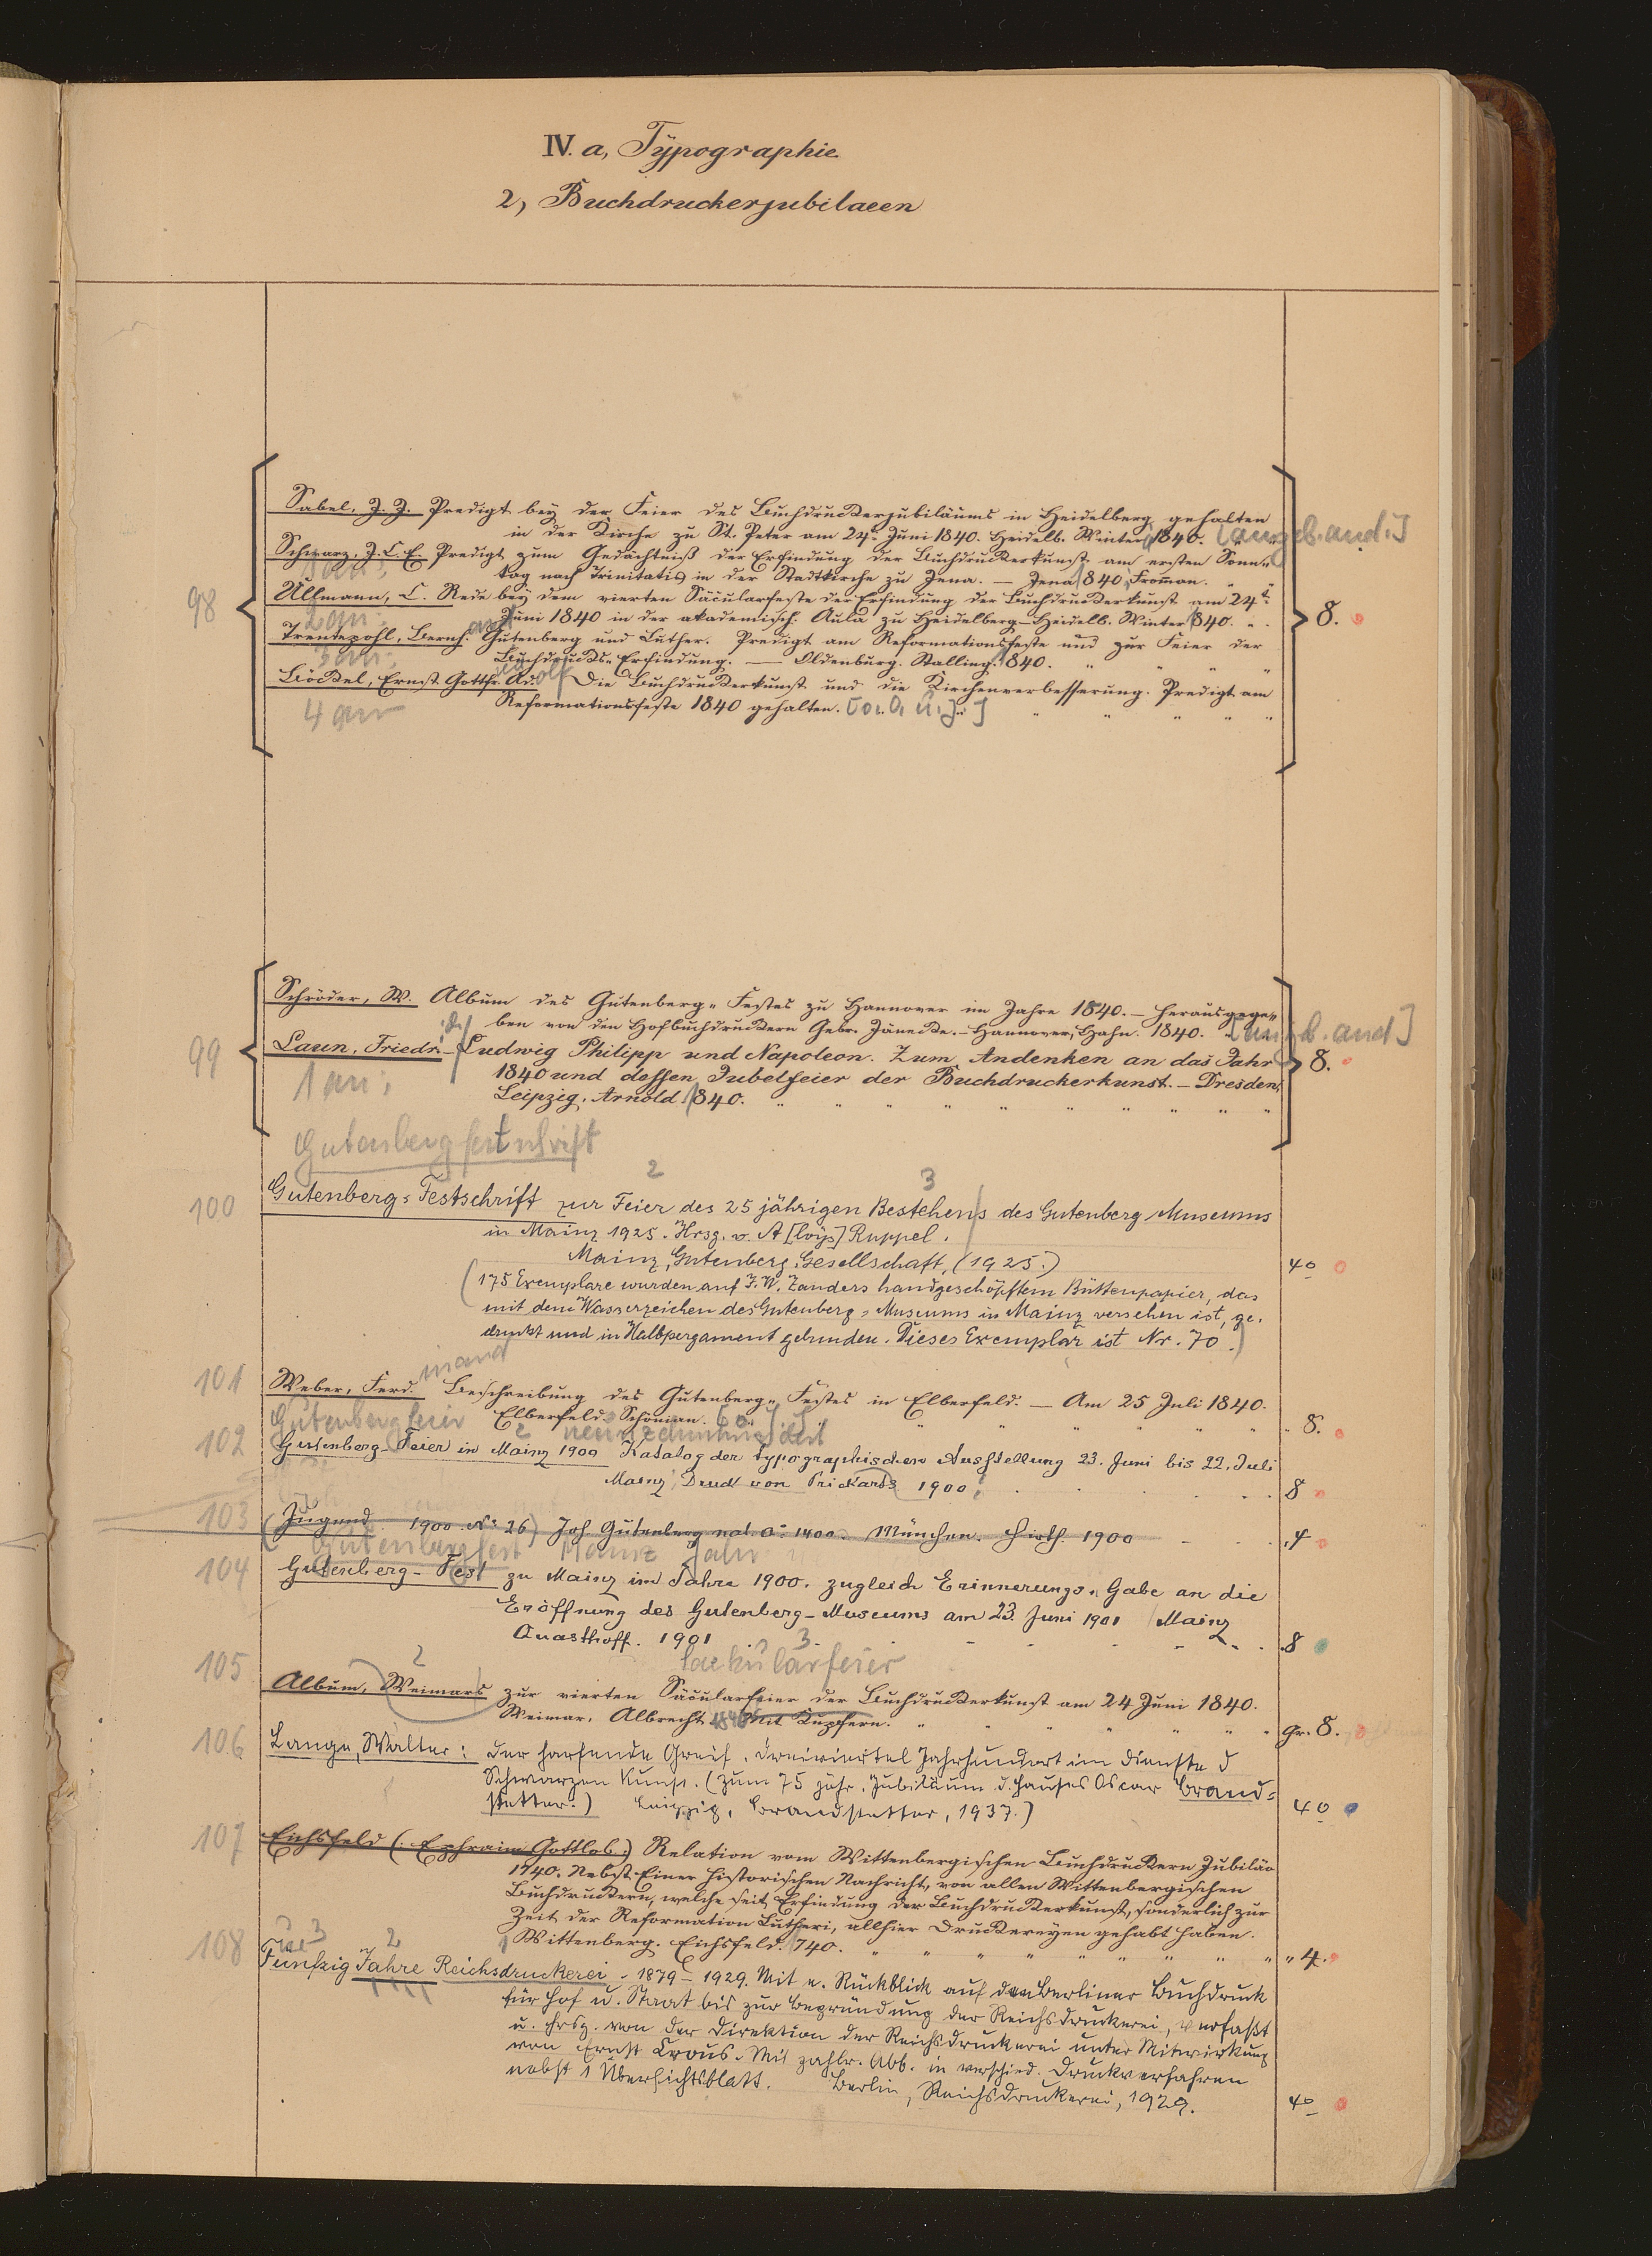 IV. a, Typographie.
2, Buchdruckerjubilaeen
98
Sabel, J. J. Predigt bey der Feier des Buchdruckerjubiläums in Heidelberg gehalten
in der Kirche zu St. Peter am 24t. Juni 1840. Heidelb. Winter 1840. [angeb. and.]
Schwarz, J. C. E. Predigt zum Gedächtniß der Erfindung der Buchdruckerkunst am ersten Sonn„
1 an:
tag nach Trinitatis in der Stadtkirche zu Jena. — Jena 1840, Fromman. „ „
Ullmann, C. Rede bey dem vierten Säcularfeste der Erfindung der Buchdruckerkunst am 24t.
2 an:
Juni 1840 in der akademisch. Aula zu Heidelberg – Heidelb. Winter 1840. „ „
8.
Trentepohl, Bernh. Gutenberg und Luther. Predigt am Reformationsfeste und zur Feier der
3 an:
Buchdrucks-Erfindung. — Oldenburg. Stalling. 1840. „ „ „ „
Böckel, Ernst Gottfr. Adolf Die Buchdruckerkunst und die Kirchenverbesserung. Predigt am
4 an
Reformationsfeste 1840 gehalten. [o. O. u. J.] „ „ „ „ „
99
Schröder, W. Album des Gutenberg„ Festes zu Hannover im Jahre 1840. – herausgege„
ben von den Hofbuchdruckern Gebr. Jänecke. – Hannover, Hahn. 1840. [an b. and]
Laun, Friedr. – Ludwig Philipp und Napoleon. Zum Andenken an das Jahr
8.
1 an:
1840 und dessen Jubelfeier der Buchdruckerkunst. – Dresden,
Leipzig. Arnold. 1840. „ „ „ „ „ „ „ „ „ „
Gutenbergfestschrift
2 3
100
Gutenberg=Festschrift zur Feier des 25 jährigen Bestehens des Gutenberg Museums
in Mainz 1925. Hrsg. v. A[loys] Ruppel.
Mainz, Gutenberg. Gesellschaft, (1925.)
40
(175 Exemplare wurden auf J. W. Zanders handgeschöpftem Büttenpapier, das
mit dem Wasserzeichen des Gutenberg=Museums in Mainz versehen ist, ge.
druckt und in Halbpergament gebunden. Dieses Exemplar ist Nr. 70.)
101
inand
Weber, Ferd. Beschreibung des Gutenberg„ Festes in Elberfeld. — Am 25 Juli 1840.
Elberfeld. Schönian. [o. J.] „ „ „ „ „ „ 8.
Gutenbergfeier 2 neunzehnhundert
102
Gutenberg-Feier in Mainz 1900 Katalog der typographischen Ausstellung 23. Juni bis 22. Juli
Mainz, Druck von Prickarts 1900.
8
103
(Jugend. 1900. No 26) Joh. Gutenberg nat. ao 1400. München. Hirth. 1900
4
Gutenbergfest Mainz Jahr
104
Gutenberg-Fest zu Mainz im Jahre 1900. zugleich Erinnerungs„ Gabe an die
Eröffnung des Gutenberg-Museums am 23. Juni 1901 Mainz
Quasthoff. 1901
8
2 3.
saekularfeier
105
Album, Weimars zur vierten Säcularfeier der Buchdruckerkunst am 24 Juni 1840.
Weimar. Albrecht. 1840 Mit Kupfern. „ „ „ „ „ „ Gr. 8.
106
Lange, Walter: Der harfende Greif. Dreiviertel Jahrhundert im Dienste d
Schwarzen Kunst. (Zum 75 jähr. Jubiläum d. Hauses Oscar Brand=
stetter.) Leipzig, Brandstetter, 1937.)
40
107
Eichsfeld (Ephraim Gottlob.) Relation vom Wittenbergischen Buchdruckern Jubiläo
1740. Nebst Einer historischen Nachricht, von allen Wittenbergischen
Buchdruckern, welche seit Erfindung der Buchdruckerkunst, sonderlich zur
Zeit der Reformation Lutheri, allhier Druckereyen gehabt haben.
Wittenberg. Eichsfeld. 1740. „ „ „ „ „ „ „ „ „ 4.
ue 3 2
108
Fünfzig Jahre Reichsdruckerei, 1879 – 1929. Mit e. Rückblick auf den Berliner Buchdruck
für Hof u. Staat bis zur Begründung der Reichsdruckerei, verfaßt
u. hrsg. von der Direktion der Reichsdruckerei unter Mitwirkung
von Ernst Crous. Mit zahlr. Abb. in verschied. Druckverfahren
nebst 1 Übersichtsblatt. Berlin, Reichsdruckerei, 1929.
40